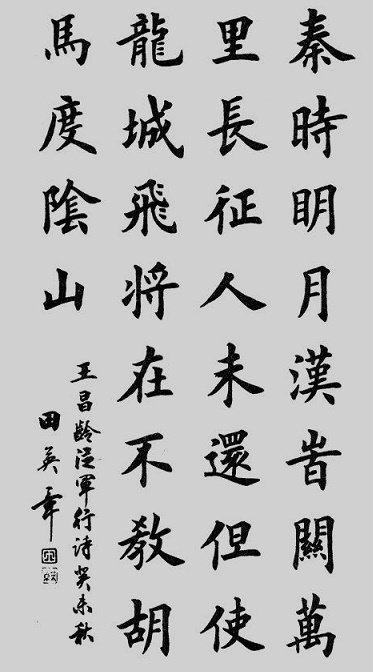 秦時明月漢旹關萬
里長征人未還但使
龍城飛将在不教胡
馬度陰山
王昌龄従軍行诗癸未秋
田英章